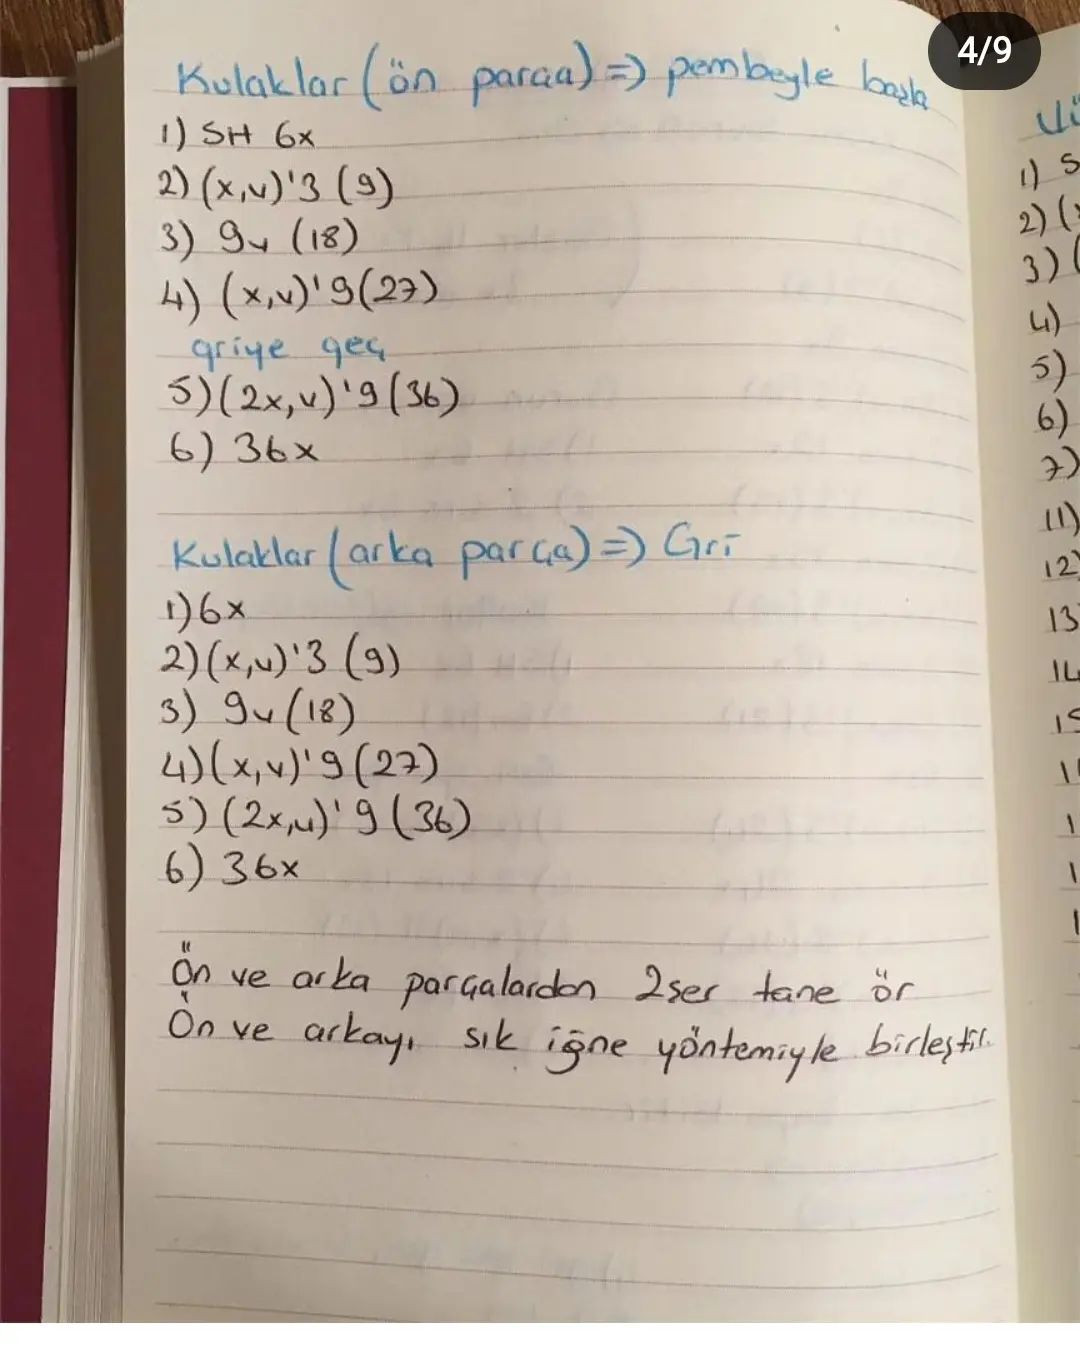 4/9
Kulaklar (ön parça) => pembeyle başla
1) SH 6x
2) (x,v)'3 (9)
3) 9v (18)
4) (x,v)'9 (27)
griye geç
5) (2x,v)'9 (36)
6) 36x
Kulaklar (arka parça) => Gri
1) 6x
2) (x,v)'3 (9)
3) 9v (18)
4) (x,v)'9 (27)
5) (2x,v)'9 (36)
6) 36x
Ön ve arka parçalardan 2şer tane ör
Ön ve arkayı sık iğne yöntemiyle birleştir.
1) S
2) (
3) (
4)
5)
6)
7)
11)
12)
13